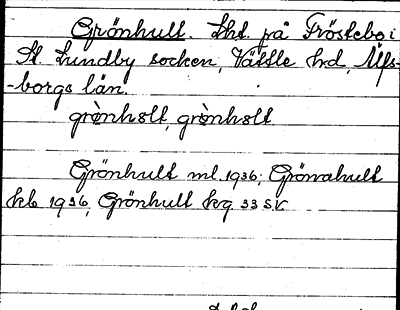 Grönhult. Lht. på Frösteboi
St. Lundby socken, Vättle hd, Älfs-
-borgs län.
grònhølt, grònhølt
Grönhult ml. 1936; Grönahult
kb 1936, Grönhult kg 33 s.v.